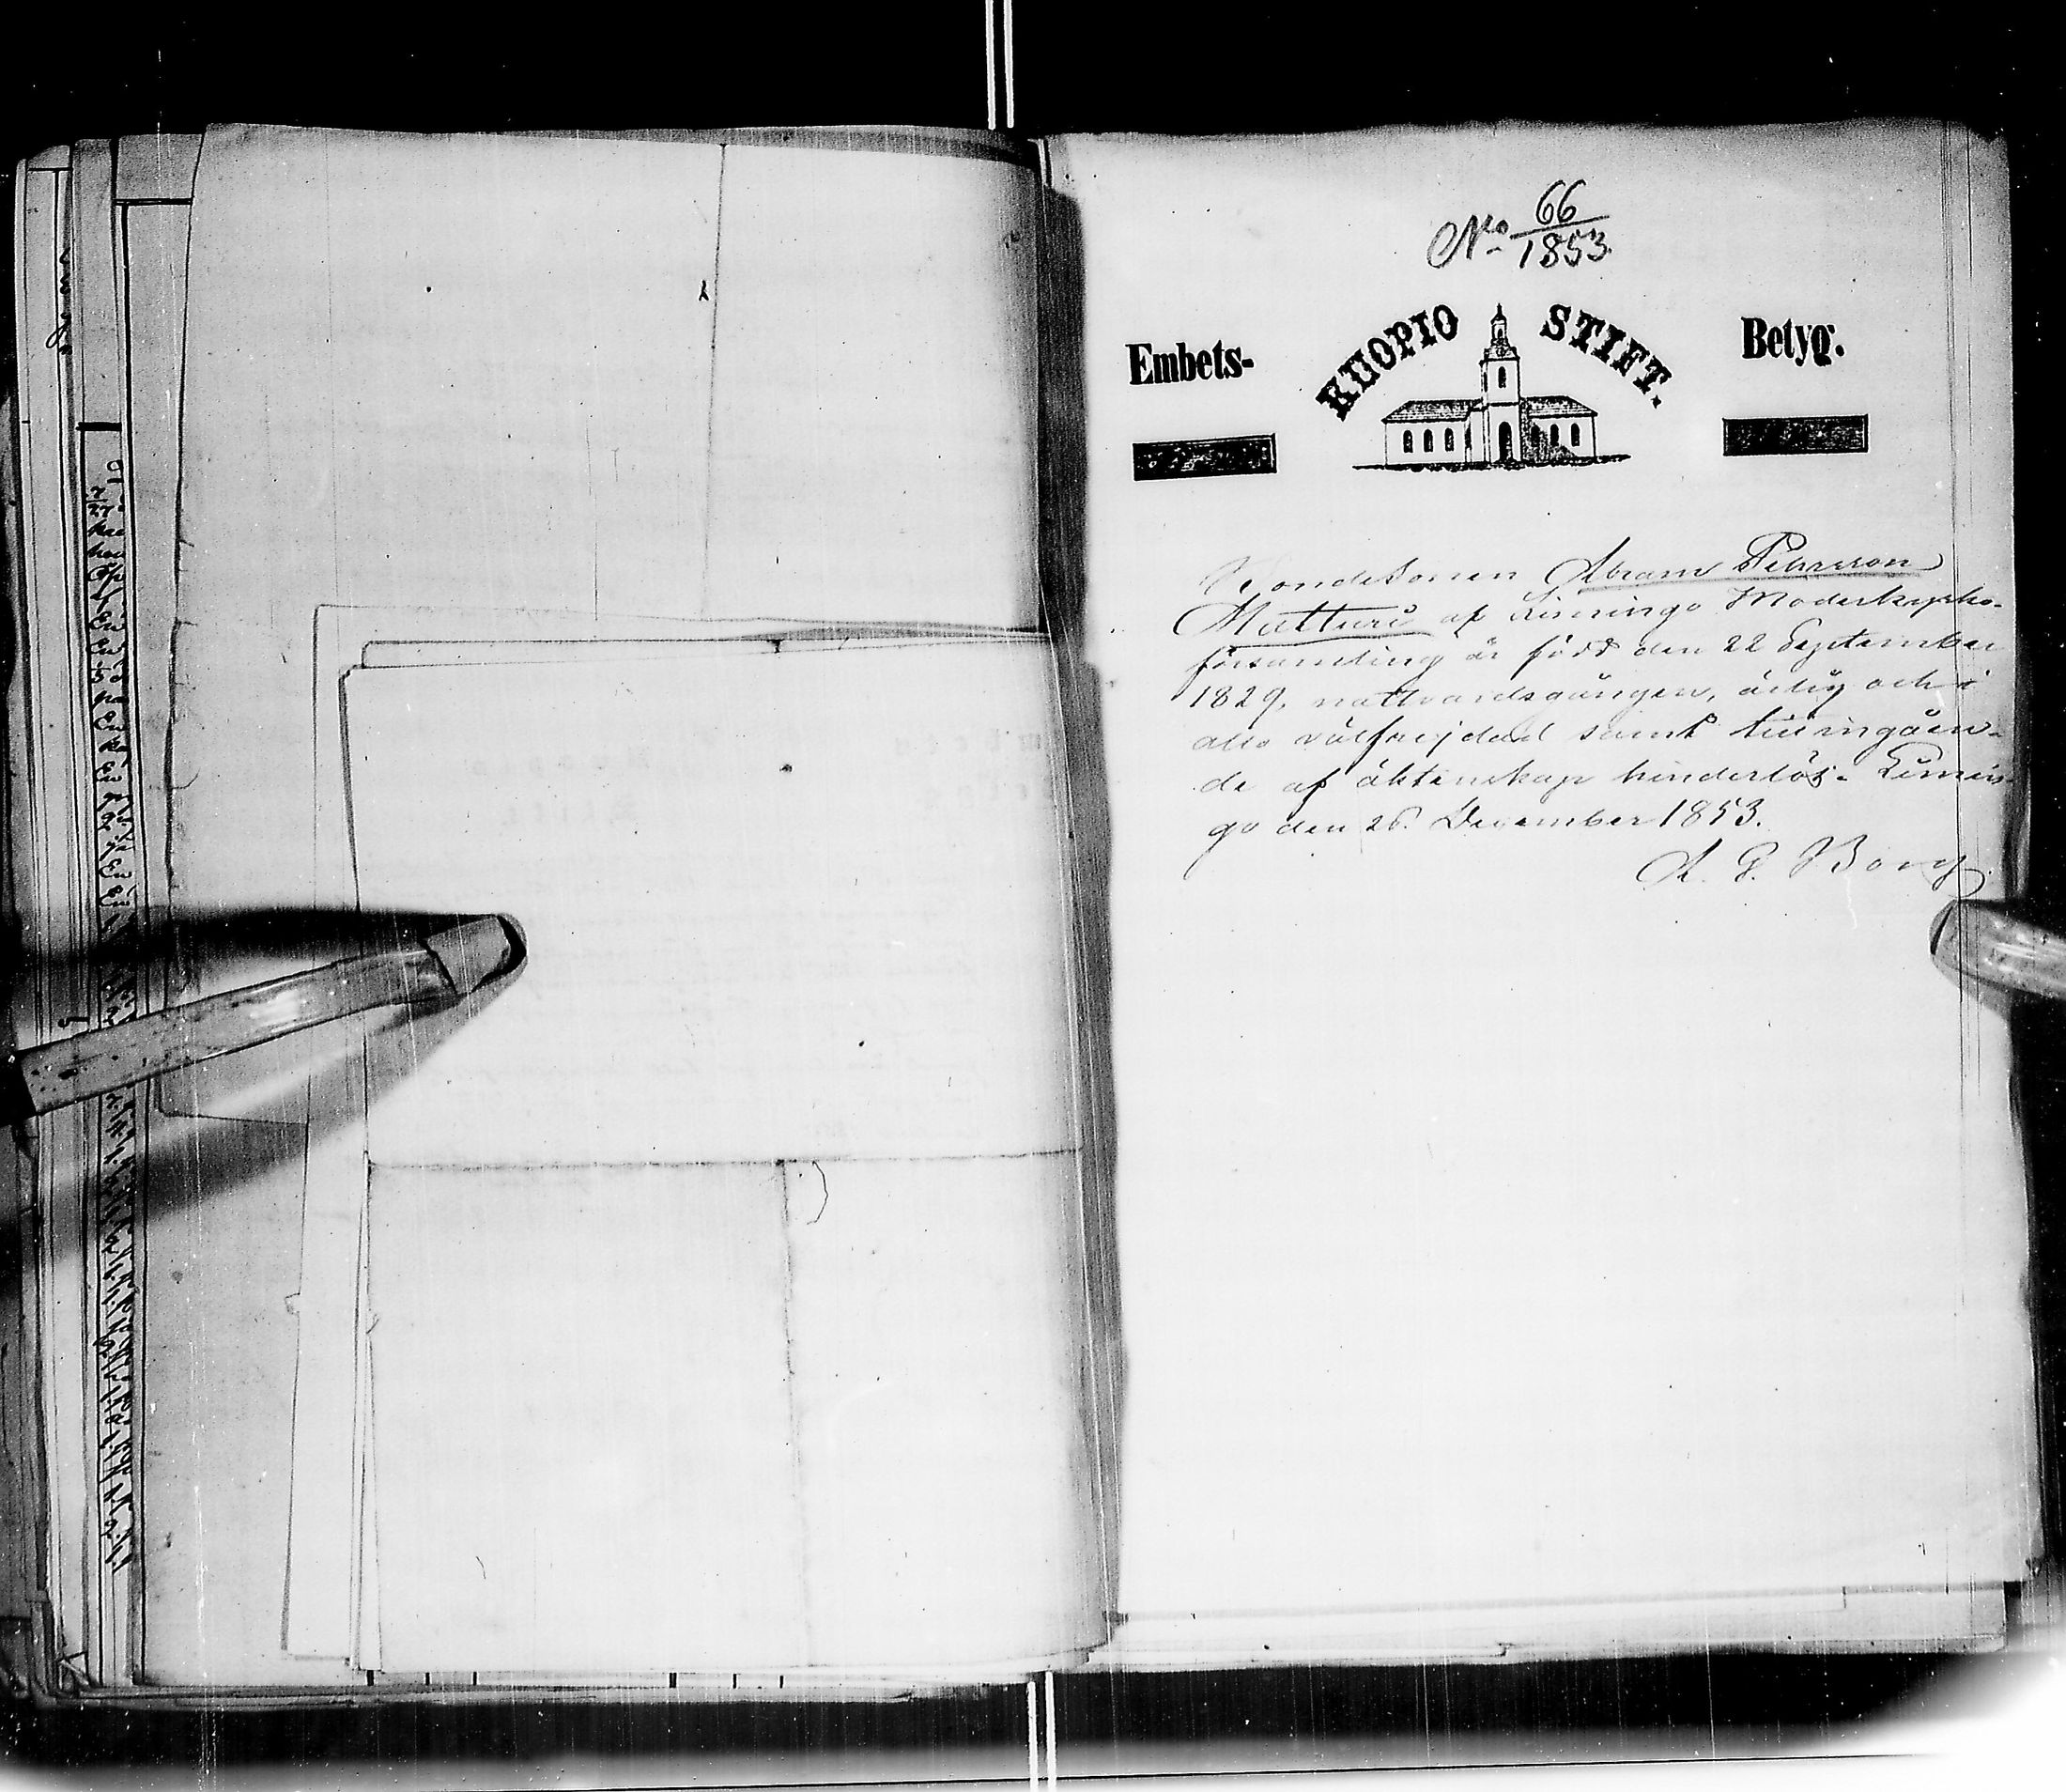 No 66/1853
Embets- KUOPIO STIFT. Betyg.
Bondesonen Abram Pehrsson
Matturi af Limingo Moderkyrko-
församling är född den 22 September
1829, nattvardsgången, ärlig och i
allo välfrejdad samt till ingåen-
de af äktenskap hinderlös. Limin
go den 26 December 1853.
A. G. Borg